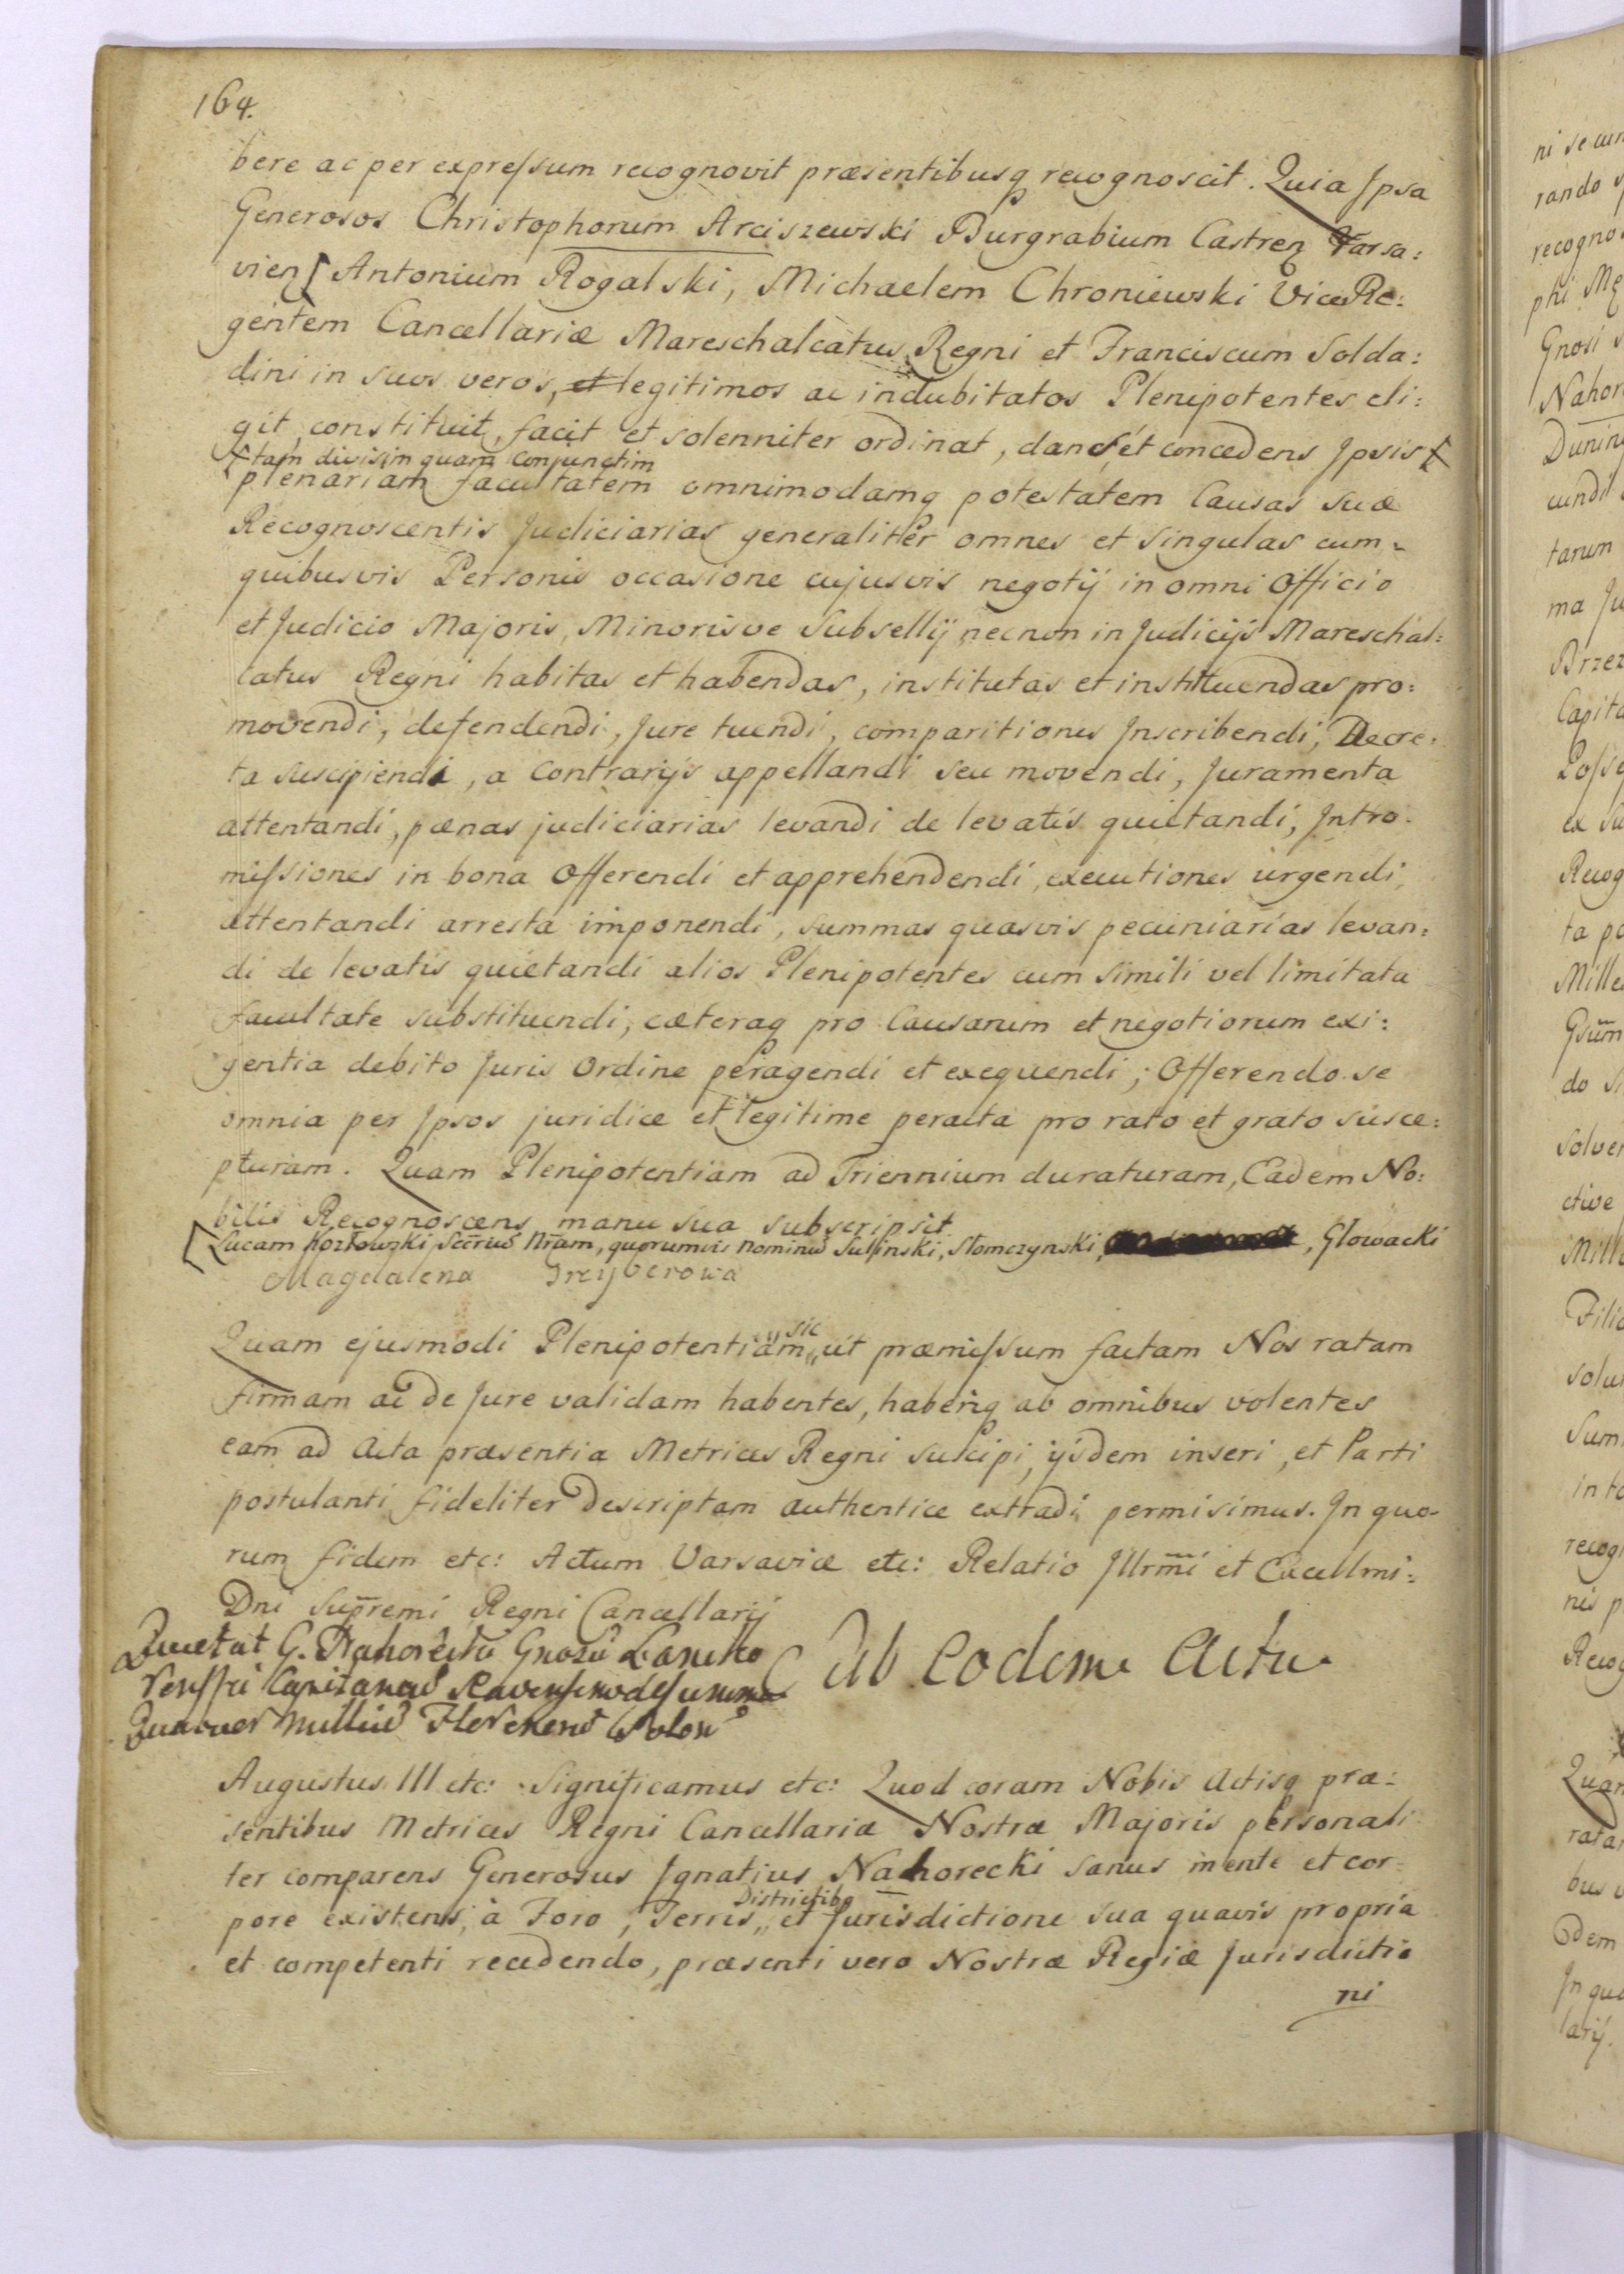 164.
bere ac per expressum recognovit præsentibusq recognoscit. Quia Ipsa
Generosos Christophorum Arciszewski Burgrabium Castren Varsa:
vien [ Antonium Rogalski, Michaelem Chroniewski Vice Re:
gentem Cancellariæ Mareschalcatus Regni et Franciscum Solda:
dini in suos veros, et legitimos ac indubitatos Plenipotentes eli:
git, constituit, facit et solenniter ordinat, dans et concedens Ipsis [
[ tam divisim quam conjunctim
plenariam facultatem omnimodamq potestatem Causas suæ
Recognoscentis Judiciarias generaliter omnes et singulas cum
quibusvis Personis occasione cujusvis negotij in omni Officio
et Judicio Majoris, Minorisve Subsellij necnon in Judicijs Mareschal:
catus Regni habitas et habendas, institutas et instituendas pro:
movendi, defendendi, Jure tuendi, comparitiones Inscribendi, Decre:
ta suscipiendi, a Contrarijs appellandi seu movendi, Juramenta
attentandi, pænas judiciarias levandi de levatis quietandi, Intro-
missiones in bona Offerendi et apprehendendi, executiones urgendi,
attentandi arresta imponendi, summas quasvis pecuniarias levan:
di de levatis quietandi alios Plenipotentes cum simili vel limitata
facultate substituendi, cæteraq pro Causarum et negotiorum exi:
gentia debito Juris Ordine peragendi et exequendi; Offerendo se
omnia per Ipsos juridice et legitime peracta pro rato et grato susce:
pturam. Quam Plenipotentiam ad Triennium duraturam, Eadem No:
bilis Recognoscens manu sua subscripsit
[ Lucam Kozłowski Secriu Nram, quorumvis Nominu Sulinski, Słomczynski, , Glowacki
Magdalena Greyberowa
Quam ejusmodi Plenipotentiam,, sic ut præmissum factam Nos ratam
firmam ac de Jure validam habentes, haberiq ab omnibus volentes
eam ad Acta præsentia Metrices Regni suscipi, ijsdem inseri, et Parti
postulanti fideliter descriptam authentice extradi permisimus. In quo-
rum fidem etc: Actum Varsaviæ etc: Relatio Illrmi et Excellmi:
Dni Supremi Regni Cancellarij
Quietat G. Nahorecki Gnosu
Capitaneu
Quatuor Milliu Polon
Ab eodem Actu
Augustus III etc: Significamus etc: Quod coram Nobis Actisq præ:
sentibus Metrices Regni Cancellariæ Nostræ Majoris personali
ter comparens Generosus Ignatius Nahorecki sanus mente et cor-
pore existens, à Foro, Terris,, Districtibq et Jurisdictione sua quavis propria
et competenti recedendo, præsenti vero Nostræ Regiæ Jurisdictio
ni